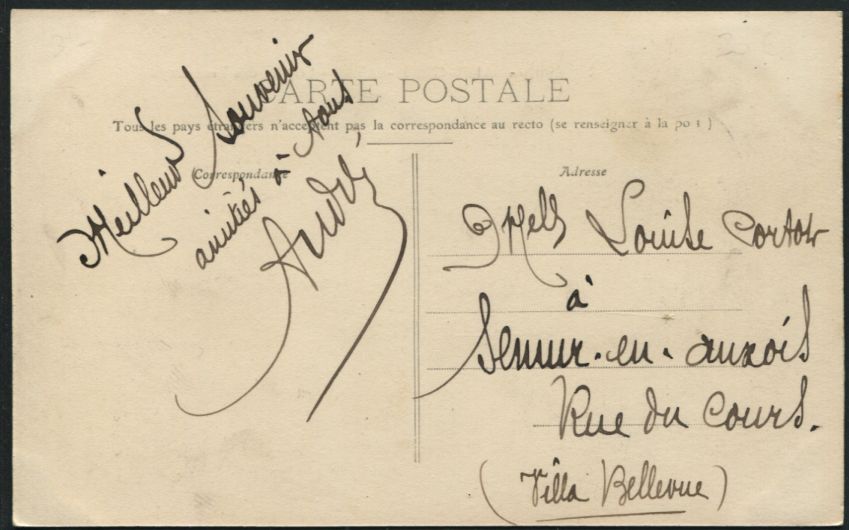 CARTE POSTALE
Tous les pays étrangers n'acceptent pas la correspondance au recto (se renseigner à la poste)
Correspondance
Meilleur Souvenir
amitiés à tous
André
Adresse
Melle Louise Cortot
à
Semur-en-auxois
Rue du Cours.
(Villa Bellevue)